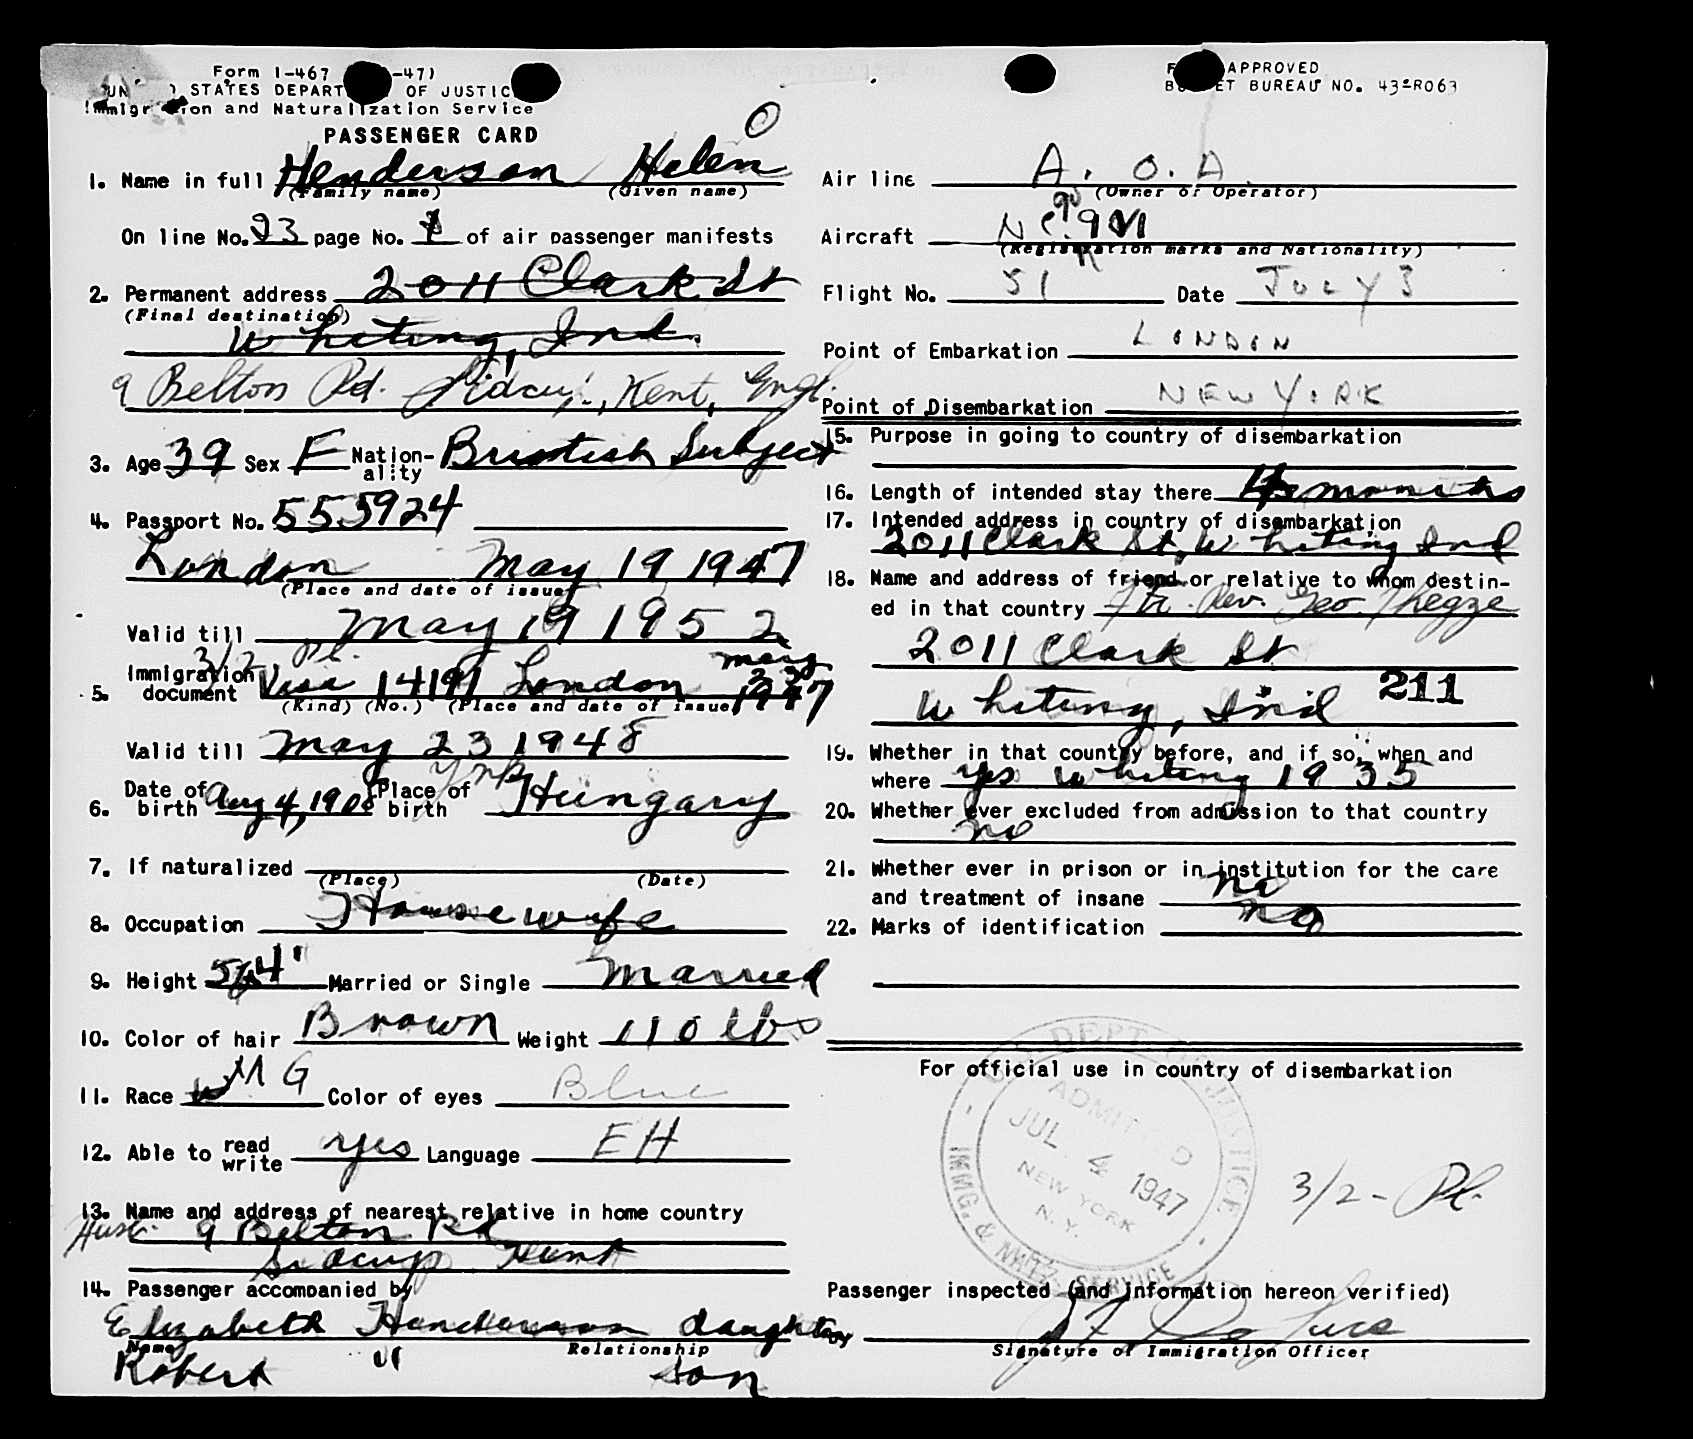 Form I-467 -47)
STATES DEPART OF JUSTIC
Immigration and Naturalization Service
PASSENGER CARD
O
1. Name in full Henderson Helen
(Family name) (Given name)
On line No. 23 page No. of air passenger manifests
2. Permanent address 2011 Clark St
(Final destination)
Whiting, Ind.
9 Belton Rd. Sidcup, Kent, Engl.
3. Age 39 Sex F Nation-ality British Subject
4. Passport No. 555924
London May 19 1947
(Place and date of issue)
Valid till May 19 1952
3/2 Pl.
5. Immigration document Visa 14191 London May 23 1947
(Kind) (No.) (Place and date of issue)
Valid till May 23 1948
6. Date of birth Aug 4, 1908 Place of birth Hungary
7. If naturalized
(Place) (Date)
8. Occupation Housewife
9. Height 5/4" Married or Single Married
10. Color of hair Brown Weight 110 lbs
11. Race W M G Color of eyes Blue
12. Able to read write yes Language EH
13. Name and address of nearest relative in home country
Husb. 9 Belton Rd
Sidcup Kent
14. Passenger accompanied by
Elizabeth Henderson daughter
Name Relationship
Robert " son
APPROVED
BUDGET BUREAU NO. 43-R063
Air line A. O. A.
(Owner or Operator)
Aircraft NC 90
(Registration marks and Nationality)
Flight No. 51 Date JULY 3
Point of Embarkation LONDON
Point of Disembarkation NEW YORK
15. Purpose in going to country of disembarkation
16. Length of intended stay there months
17. Intended address in country of disembarkation
2011 Clark St, Whiting Ind
18. Name and address of friend or relative to whom destin-
ed in that country Rev. Geo.
2011 Clark St
Whiting, Ind
211
19. Whether in that country before, and if so, when and
where yes Whiting 1935
20. Whether ever excluded from admission to that country
no
21. Whether ever in prison or in institution for the care
and treatment of insane no
22. Marks of identification no
For official use in country of disembarkation
U.S. DEPT. OF JUSTICE
ADMITTED
JUL 4 1947
NEW YORK
N. Y.
IMMG. & NATZ. SERVICE
3/2 - Pl.
Passenger inspected (and information hereon verified)
Signature of Immigration Officer